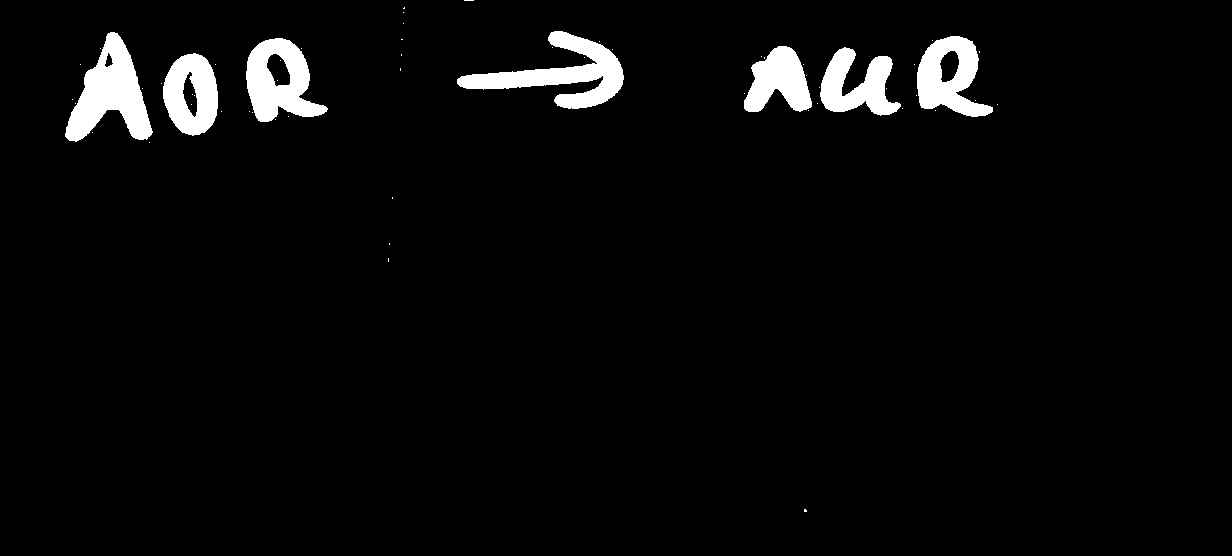 AOR → AUR